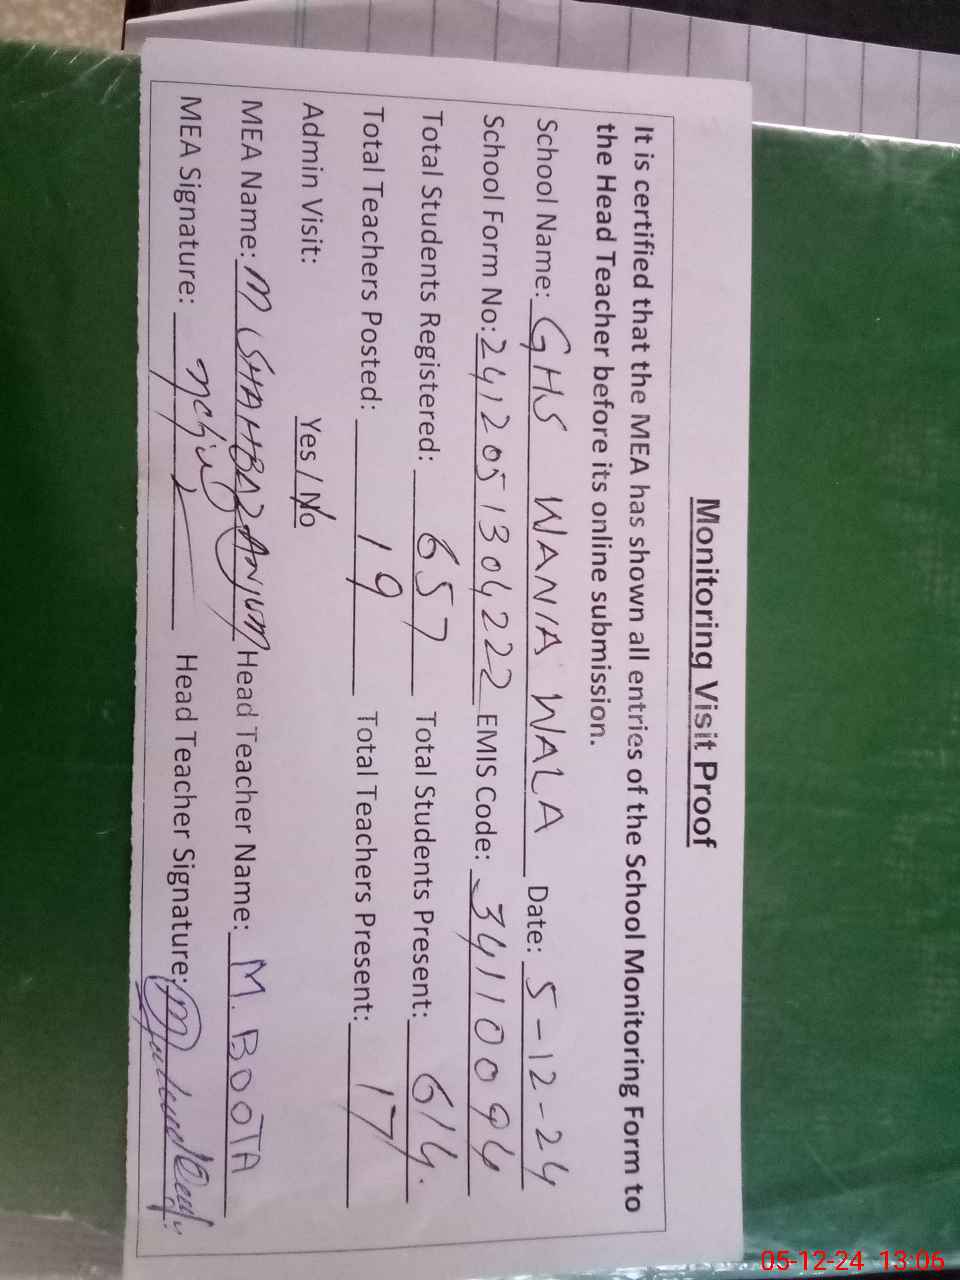 Monitoring Visit Proof
It is certified that the MEA has shown all entries of the School Monitoring Form to
the Head Teacher before its online submission.
School Name: GHS WANIA WALA Date: 5-12-24
School Form No: 241205130422 2 EMIS Code: 34110094
Total Students Registered: 657 Total Students Present: 614.
Total Teachers Posted: 19 Total Teachers Present: 17
Admin Visit: Yes / No
MEA Name: M SHAHBAZ ANJUM Head Teacher Name: M. BOOTA
MEA Signature: Head Teacher Signature:
05-12-24 13:06